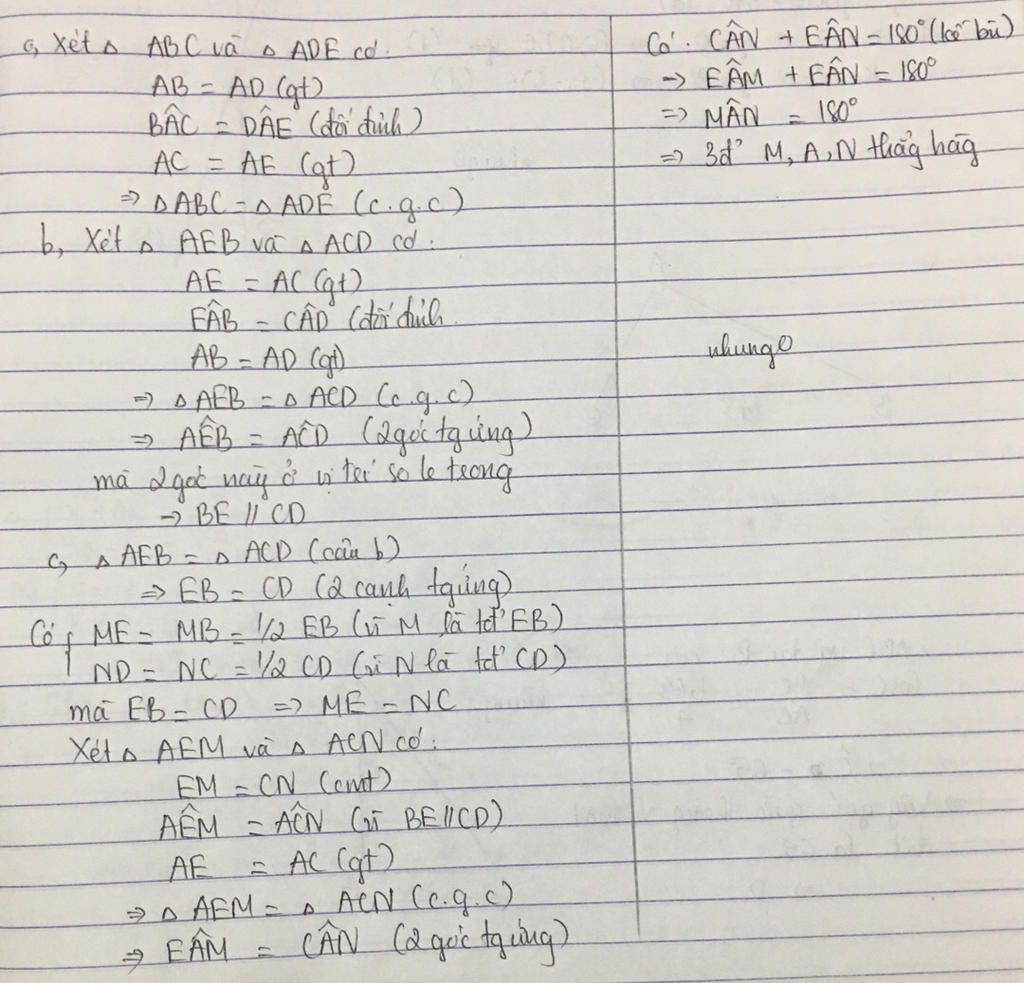 a, Xét △ ABC và △ ADE có:
AB = AD (gt)
BÂC = DÂE (đối đỉnh)
AC = AE (gt)
=> △ABC = △ADE (c.g.c)
b, Xét △ AEB và △ ACD có:
AE = AC (gt)
EÂB = CÂD (đối đỉnh
AB = AD (gt)
=> △AEB = △ACD (c.g.c)
=> AÊB = AĈD (2 góc tg ứng)
mà 2 góc này ở vị trí so le trong
=> BE // CD
c, △AEB = △ACD (câu b)
=> EB = CD (2 cạnh tg ứng)
Có { ME = MB = 1/2 EB (vì M là tđ' EB)
ND = NC = 1/2 CD (vì N là tđ' CD)
mà EB = CD => ME = NC
Xét △ AEM và △ ACN có:
EM = CN (cmt)
AÊM = AĈN (vì BE//CD)
AE = AC (gt)
=> △AEM = △ACN (c.g.c)
=> EÂM = CÂN (2 góc tg ứng)
Có: CÂN + EÂN = 180° (kề bù)
=> EÂM + EÂN = 180°
=> MÂN = 180°
=> 3đ' M, A, N thẳg hàg
nhung